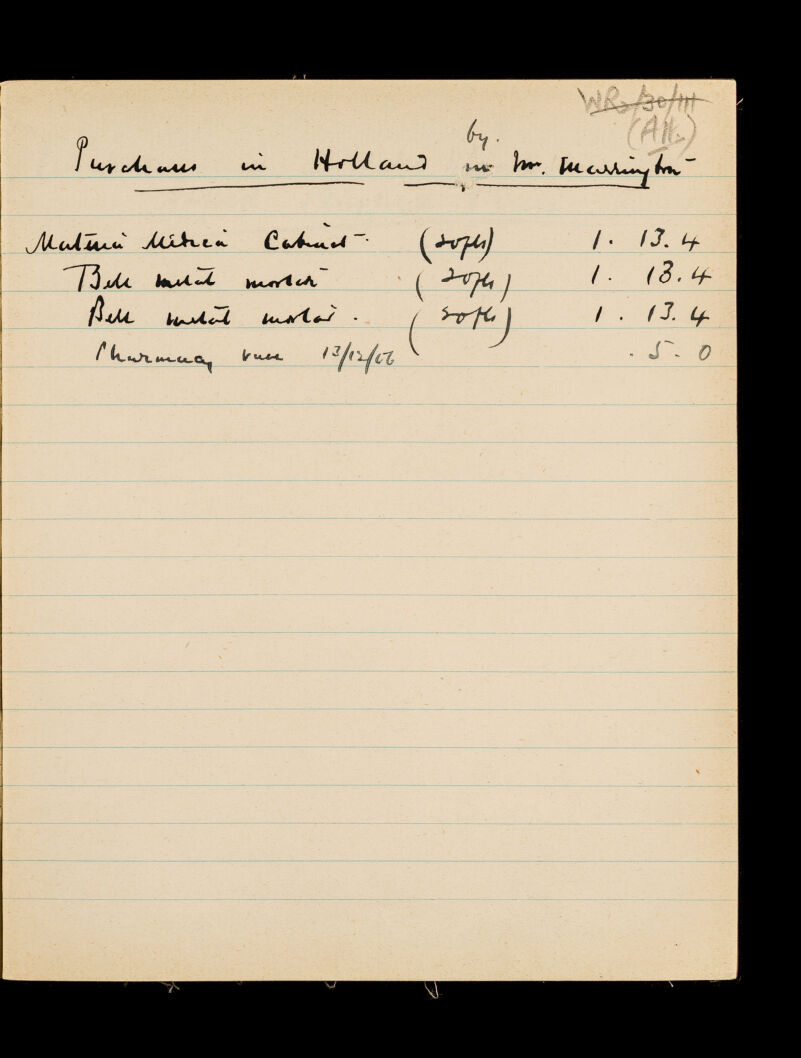 WR2/30/111
(All.)
by.
Purchases in Holland Mr. Marrington
Materia Medica Cabinet. (20fls) 1. 13. 4
Bell metal mortar (20fls) 1. 13. 4
Bell metal mortar. (20fls) 1. 13. 4
Pharmacy vase 13/12/06 . 5. 0